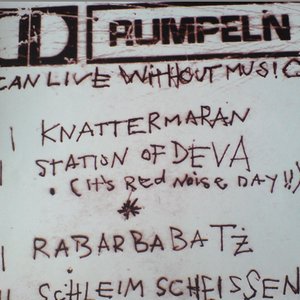 RUMPEL'N
CAN LIVE WITHOUT MUSIC
KNATTERMARAN
STATION OF DEVA
(IT'S RED NOISE DAY!!)
*
RABARBABATZ
SCHLEIM SCHEISSEN